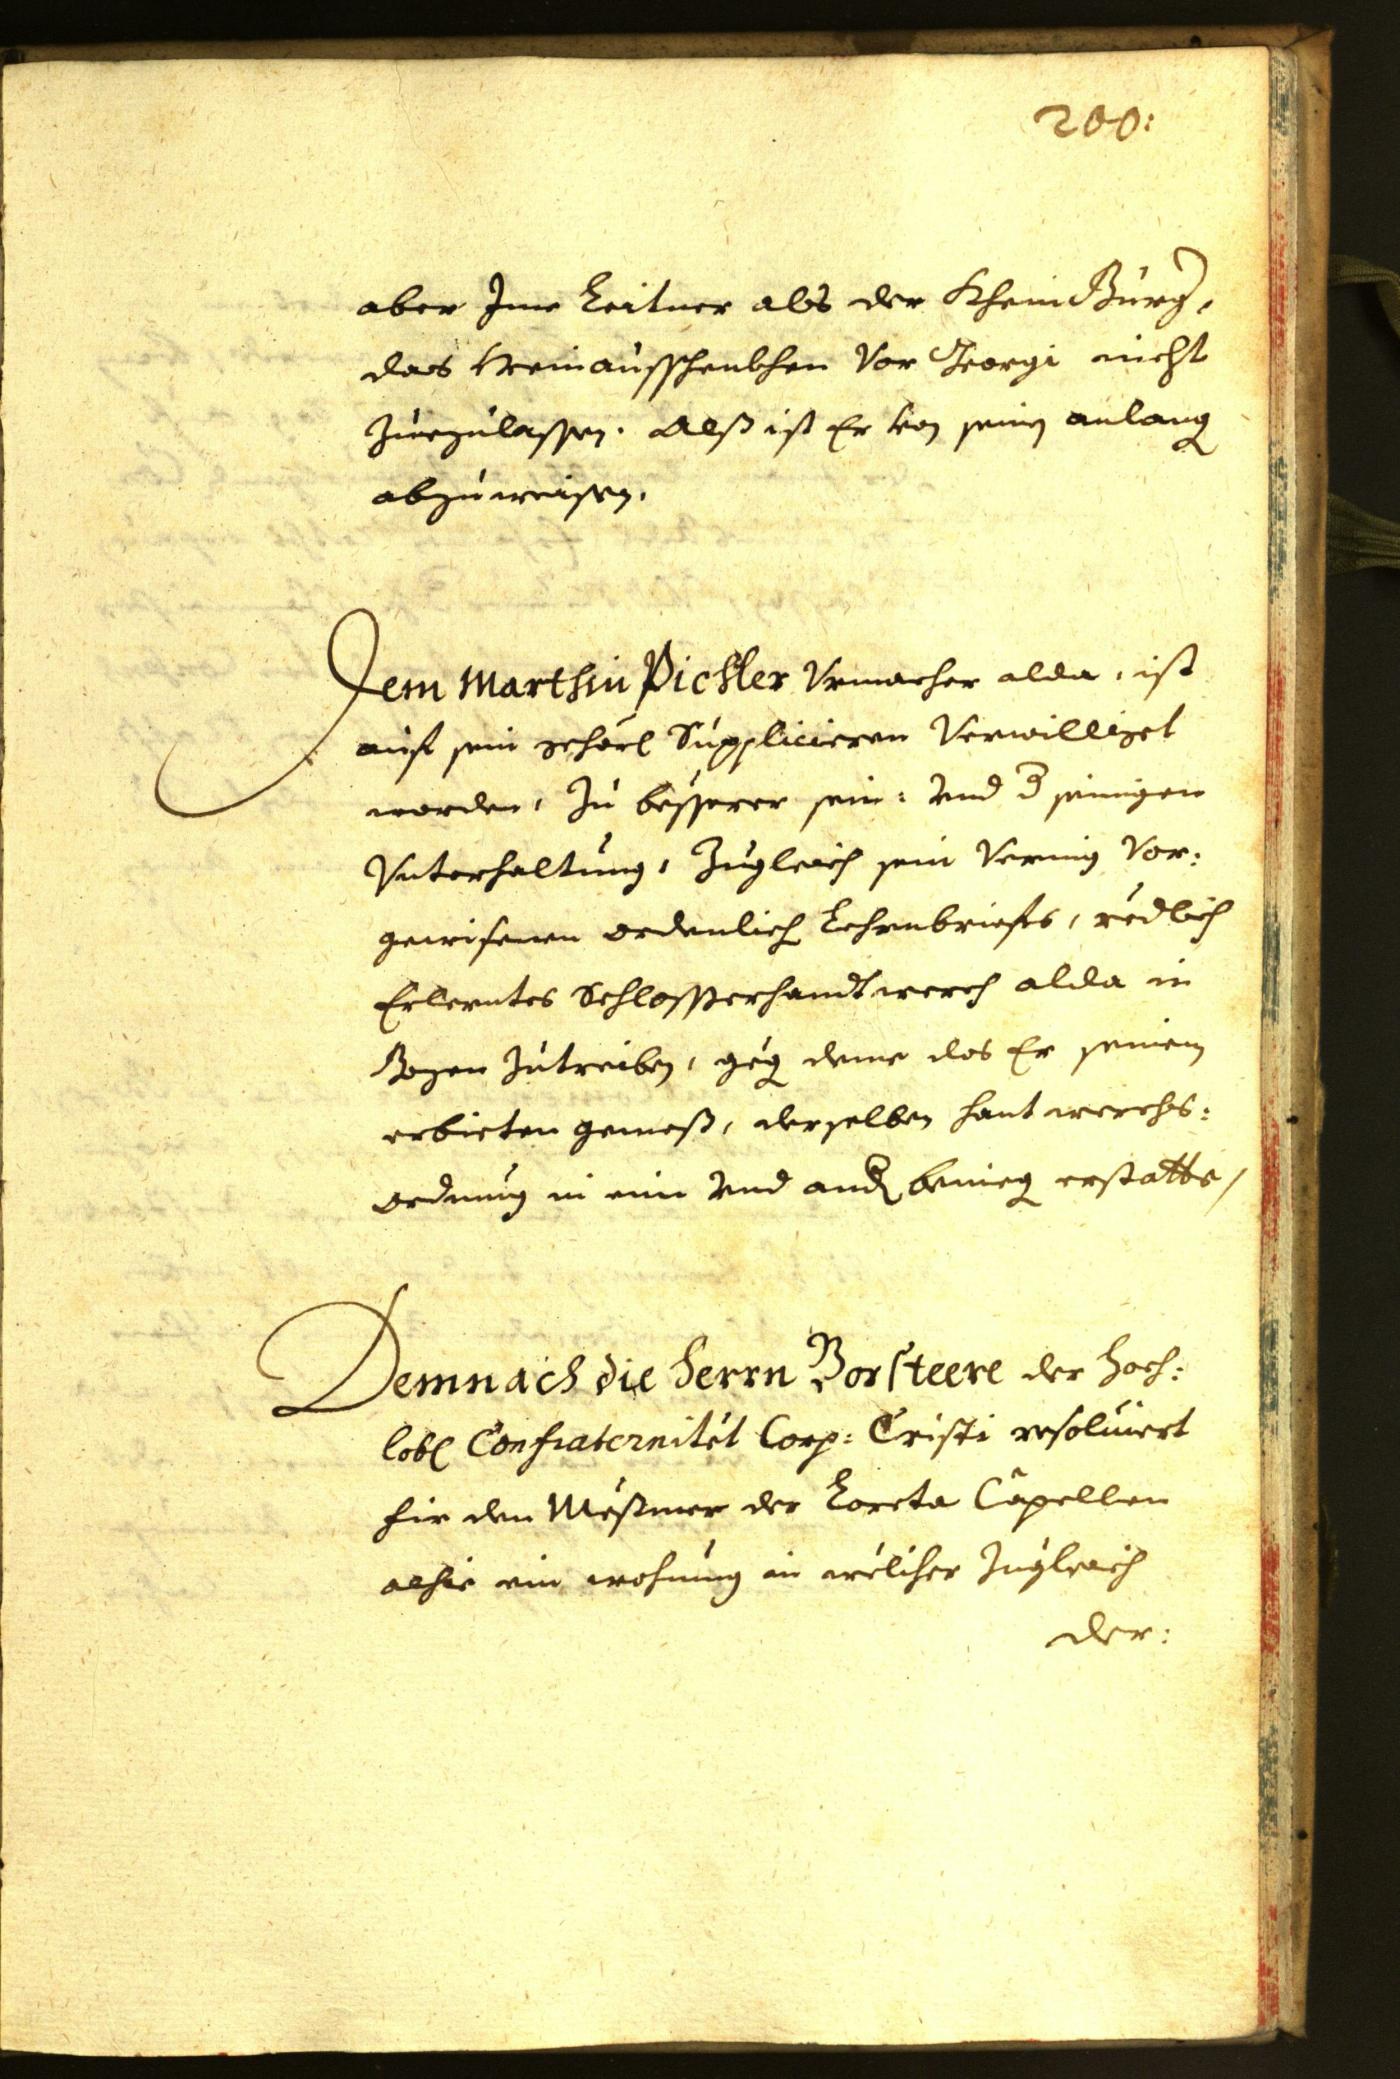 200:
aber Ime Leitner als der Khein Burg,
das Weinausschenkhen vor Georgi nicht
zuezulassen. Alß ist Er von seinem anlang
abzuweisen.
Dem Marthin Pichler Vrmacher alda, ist
auf sein gehorsl Supplicieren Verwilliget
worden, zu besserer sein: vnd d seinigen
Vnterhaltung, Zugleich sein Vermig Vor:
gewisenen ordenlich Lehrnbriefs, redlich
Erlerntes Schlosserhandtwerch alda in
Bozen zutreiben, geg deme das Er seinem
erbieten gemeß, derselben hantwerchs:
ordnung in ein vnd and benieg erstatte,
Demnach die herrn Vorsteere der hoch:
lobl Confraternitet Corp: Cristi resoluiert
fir den Meßmer der Loreta Capellen
alhie ein wohnung in welicher zugleich
der: